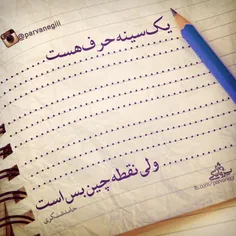 @parvanegili
یک سینه حرف هست
ولی نقطه چین بس است